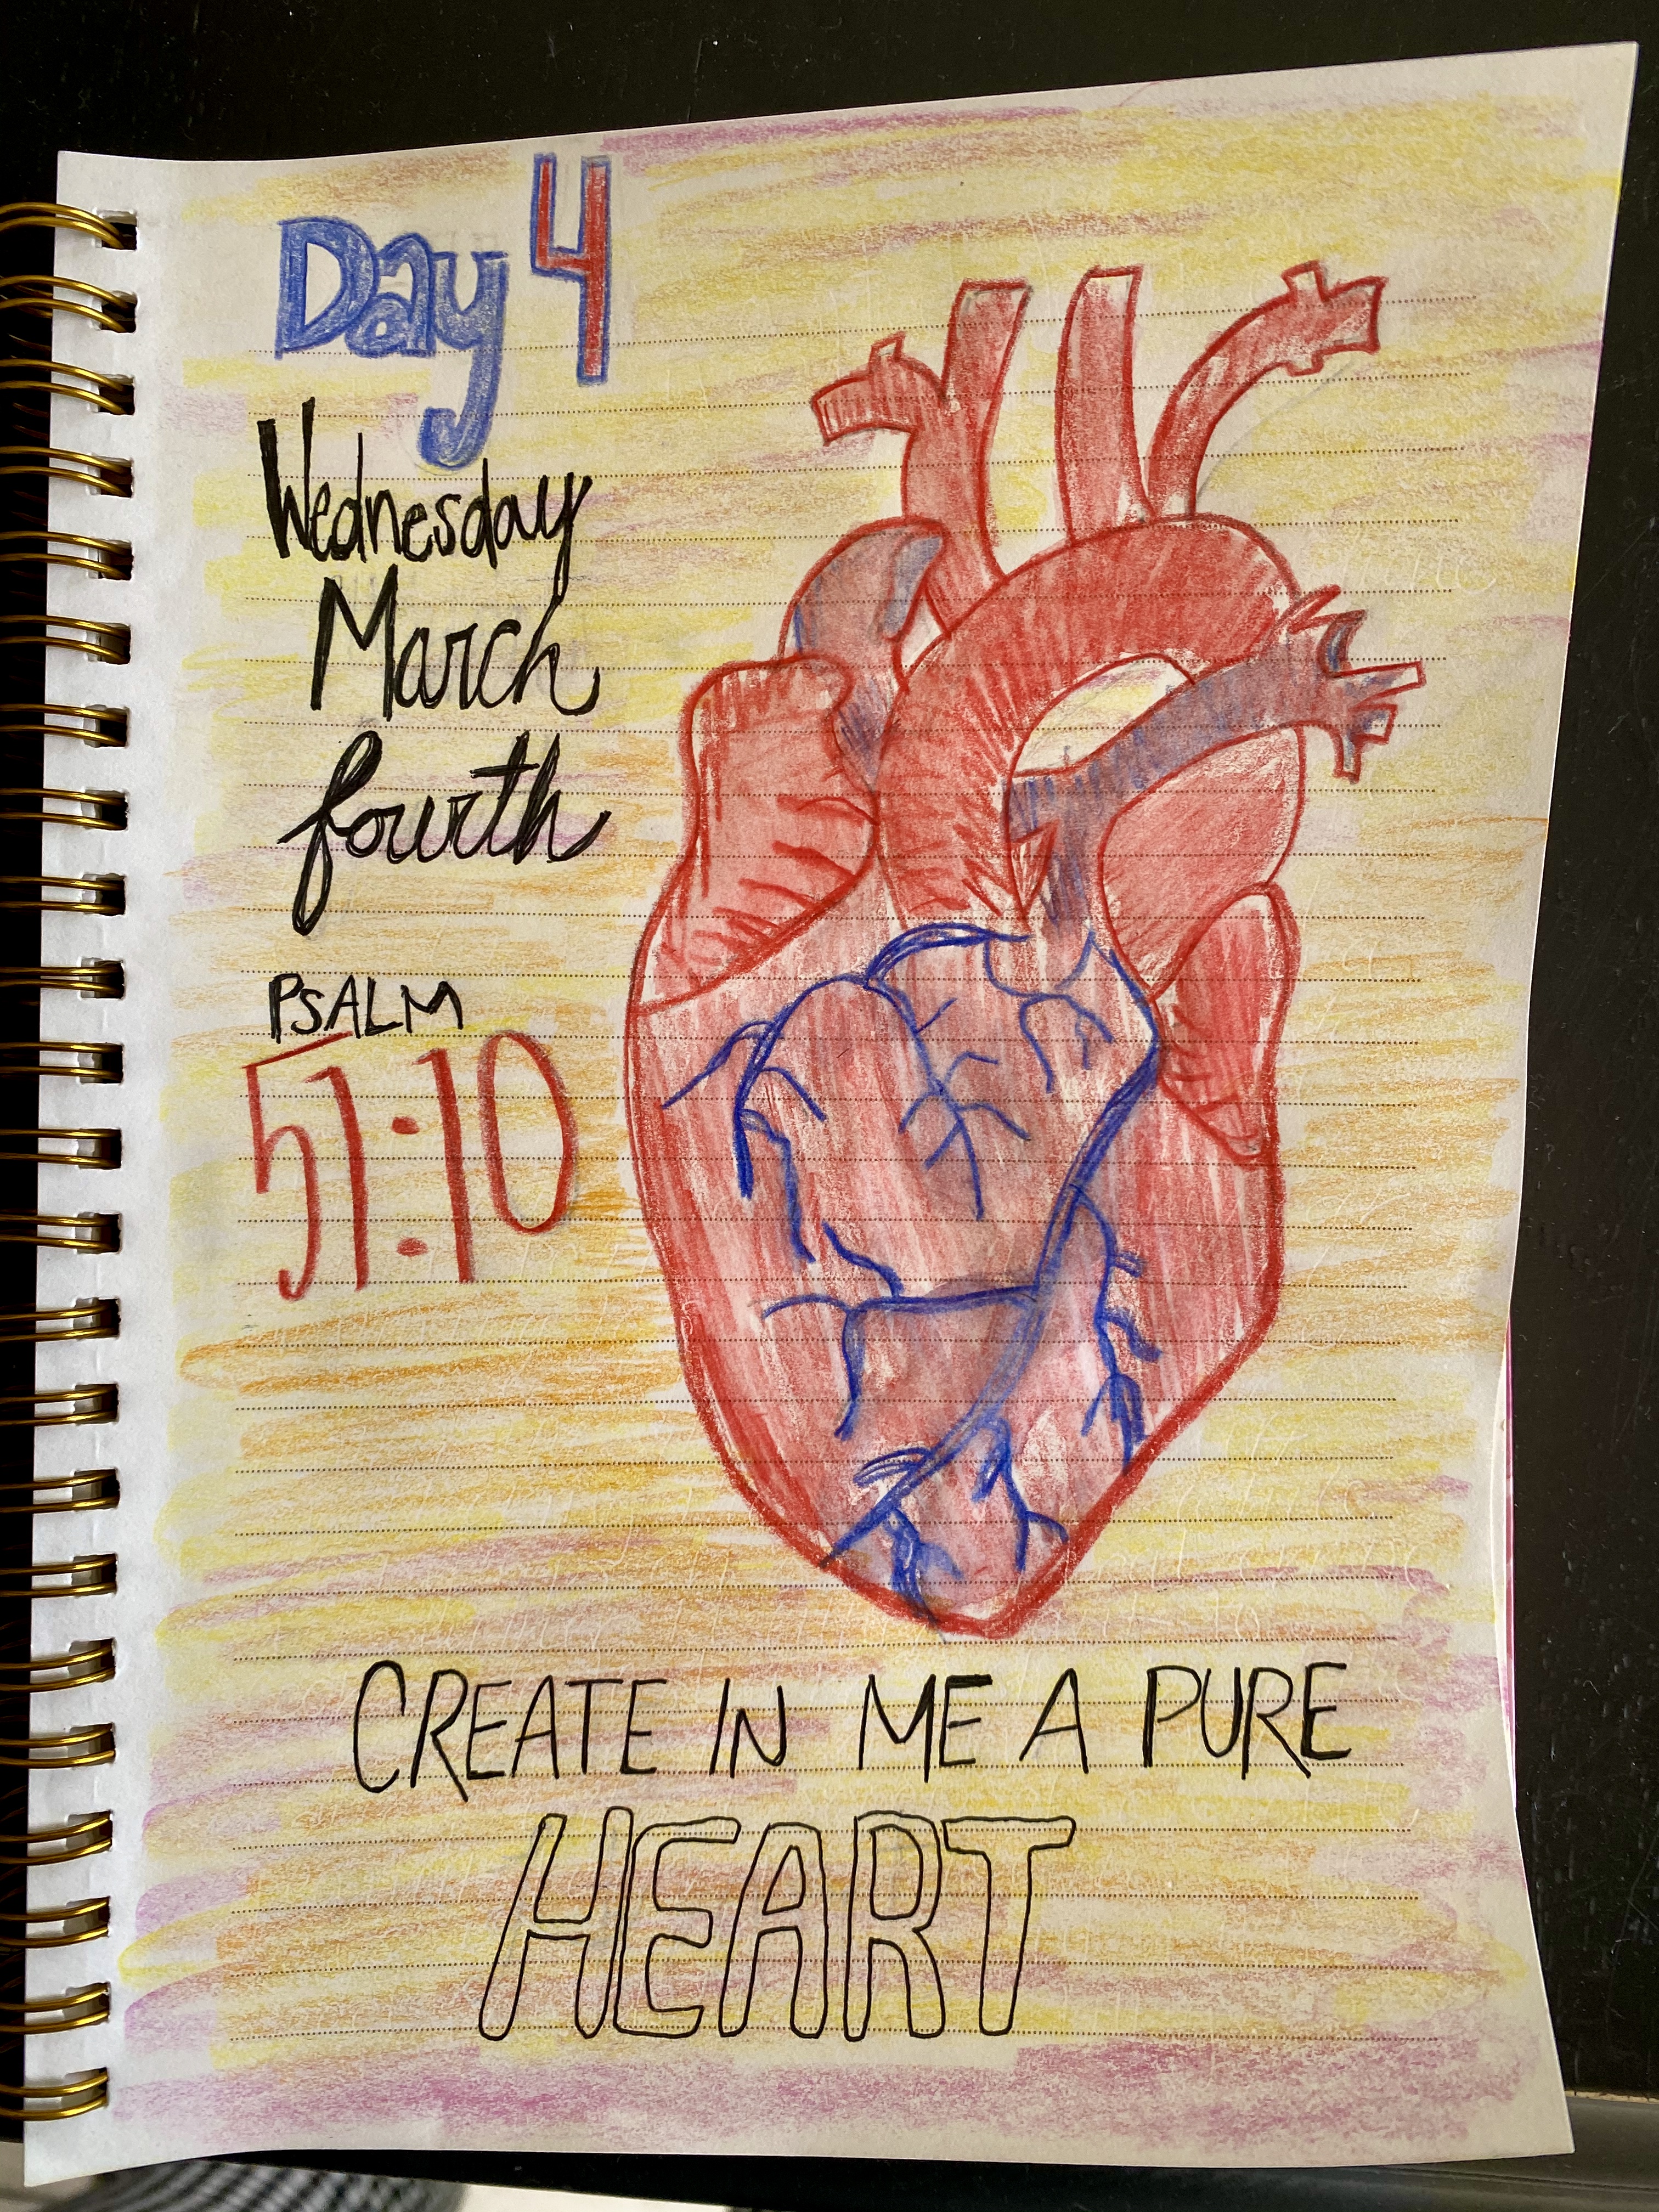 Day 4
Wednesday
March
fourth
PSALM
51:10
CREATE IN ME A PURE
HEART